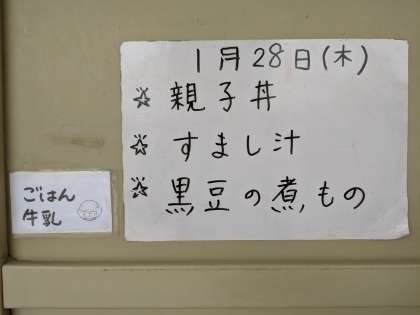 1月28日(木)
☆ 親子丼
☆ すまし汁
☆ 黒豆の煮もの
ごはん
牛乳